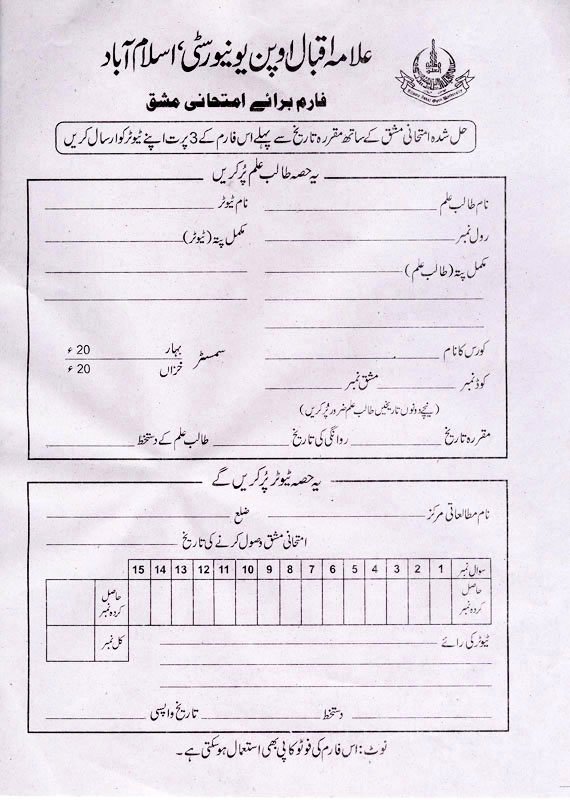 علامہ اقبال اوپن یونیورسٹی، اسلام آباد
فارم برائے امتحانی مشق
حل شدہ امتحانی مشق کے ساتھ مقررہ تاریخ سے پہلے اس فارم کے 3 پرت اپنے ٹیوٹر کو ارسال کریں
یہ حصہ طالب علم پُر کریں
نام طالب علم نام ٹیوٹر
رول نمبر مکمل پتہ (ٹیوٹر)
مکمل پتہ (طالب علم)
کورس کا نام سمسٹر بہار 20 ء
خزاں 20 ء
کوڈ نمبر مشق نمبر
(نیچے دونوں تاریخیں طالب علم ضرور پُر کریں)
مقررہ تاریخ روانگی کی تاریخ طالب علم کے دستخط
یہ حصہ ٹیوٹر پُر کریں گے
نام مطالعاتی مرکز ضلع
امتحانی مشق وصول کرنے کی تاریخ
سوال نمبر 1 2 3 4 5 6 7 8 9 10 11 12 13 14 15
حاصل کردہ نمبر حاصل کردہ نمبر
کل نمبر
ٹیوٹر کی رائے
دستخط تاریخ واپسی
نوٹ: اس فارم کی فوٹو کاپی بھی استعمال ہو سکتی ہے۔